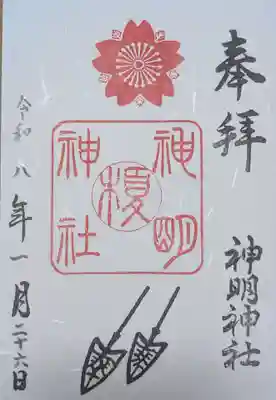 奉拝
神明神社
神明
神社
令和八年一月二十六日